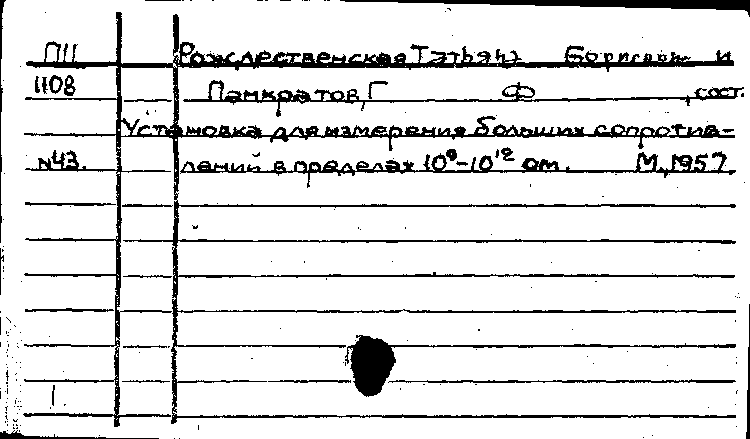 ПП Рождественская Татьяна Борисовна и
1108 Панкратов, Г Ф , сост.
Установка для измерения больших сопротив-
N43. лений в пределах 10⁹-10¹² ом. М., 1957
1